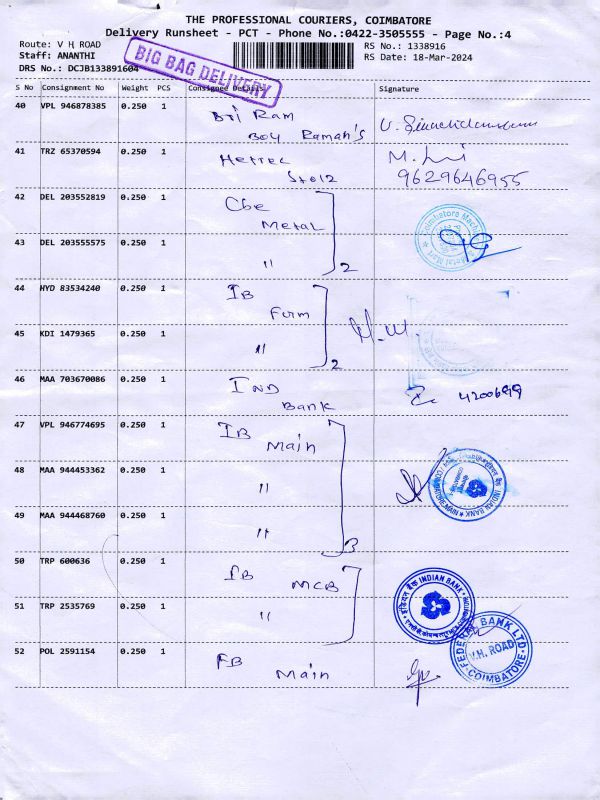 THE PROFESSIONAL COURIERS, COIMBATORE
Delivery Runsheet - PCT - Phone No.:0422-3505555 - Page No.:4
Route: V H ROAD
RS No.: 1338916
Staff: ANANTHI
RS Date: 18-Mar-2024
DRS No.: DCJB133891604
BIG BAG DELIVERY
S No Consignment No Weight PCS Consignee Details Signature
40 VPL 946878385 0.250 1 Sri Ram
Boy Raman's
41 TRZ 65370594 0.250 1
9629646955
42 DEL 203552819 0.250 1 Cbe
Metal
43 DEL 203555575 0.250 1 "
2
44 HYD 83534240 0.250 1 IB
Firm
45 KDI 1479365 0.250 1 "
2
46 MAA 703670086 0.250 1 IND
Bank
47 VPL 946774695 0.250 1 IB
Main
48 MAA 944453362 0.250 1 "
49 MAA 944468760 0.250 1 "
3
INDIAN BANK
COIMBATORE MAIN
50 TRP 600636 0.250 1 IB
MCB
51 TRP 2535769 0.250 1 "
इंडियन बैंक INDIAN BANK
52 POL 2591154 0.250 1 FB
Main
FEDERAL BANK LTD.
V.H. ROAD
COIMBATORE